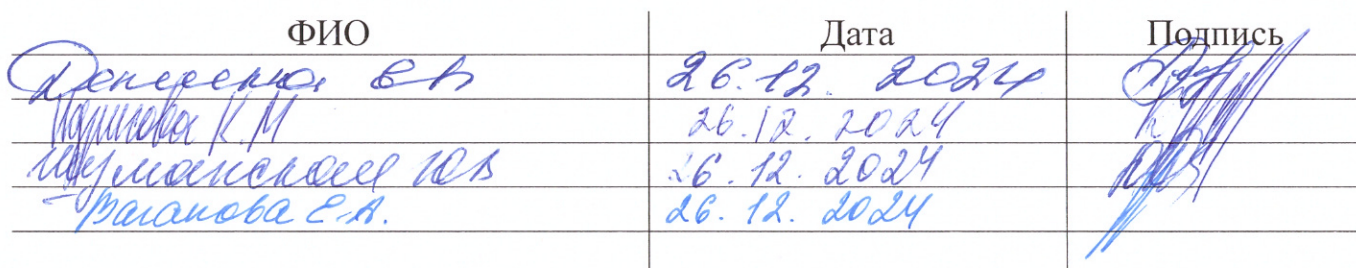 ФИО Дата Подпись
Е.В. 26.12. 2024
К.М 26.12. 2024
Шуманская Ю.В 26.12. 2024
Ваганова Е.А. 26.12. 2024